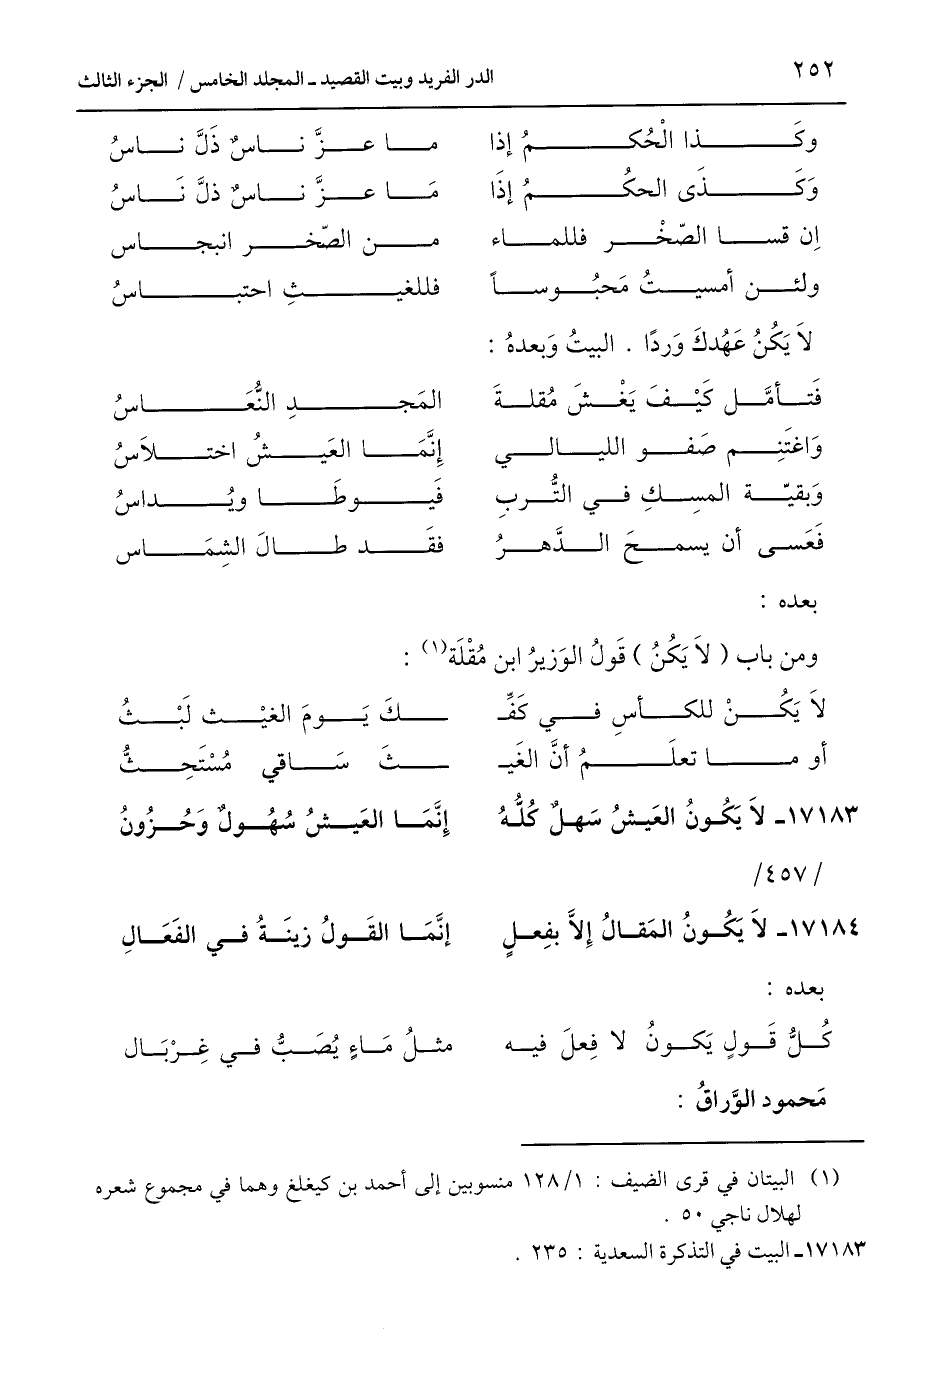 ٢٥٢ الدر الفريد وبيت القصيد ـ المجلد الخامس / الجزء الثالث
وكَذا الْحُكمُ إذا ما عزَّ ناسٌ ذَلَّ ناسُ
وَكَذَى الحكُمُ إذَا مَا عزَّ ناسٌ ذلَّ نَاسُ
إن قسا الصّخْر فللماء من الصّخر انبجاس
ولئن أمسيتُ مَحبُوساً فللغيثِ احتباسُ
لاَ يَكُنُ عَهْدكَ وَردًا . البيتُ وَبعدهُ :
فَتأمَّل كَيْفَ يَغْشَ مُقلةَ المَجدِ النُّعَاسُ
وَاغتَنِم صَفو الليالي إنَّمَا العَيشُ اختلاَسُ
وَبقيّة المسكِ في التُّربِ فَيوطَا ويُداسُ
فَعَسى أن يسمحَ الدَّهرُ فقَد طالَ الشِمَاس
بعده :
ومن باب ( لاَ يَكُنْ ) قَولُ الوَزيرُ ابن مُقْلَة(١) :
لاَ يَكُنْ للكأسِ في كَفِّـ ـكَ يَومَ الغَيْث لَبْثُ
أو ما تعلَمُ أنَّ الغَيـ ـثَ سَاقي مُسْتَحِثُّ
١٧١٨٣ـ لاَ يَكُونُ العَيشُ سَهلٌ كُلُّهُ إنَّمَا العَيشُ سُهُولٌ وَحُزُونُ
/٤٥٧/
١٧١٨٤ـ لاَ يَكُونُ المَقالُ إلاَّ بفِعلٍ إنَّمَا القَولُ زينَةُ في الفَعَالِ
بعده :
كُلُّ قَولٍ يَكونُ لا فِعلَ فيه مثلُ مَاءٍ يُصَبُّ في غِرْبَال
مَحمود الوَّراقُ :
(١) البيتان في قرى الضيف : ١٢٨/١ منسوبين إلى أحمد بن كيغلغ وهما في مجموع شعره
لهلال ناجي ٥٠ .
١٧١٨٣ـ البيت في التذكرة السعدية : ٢٣٥ .